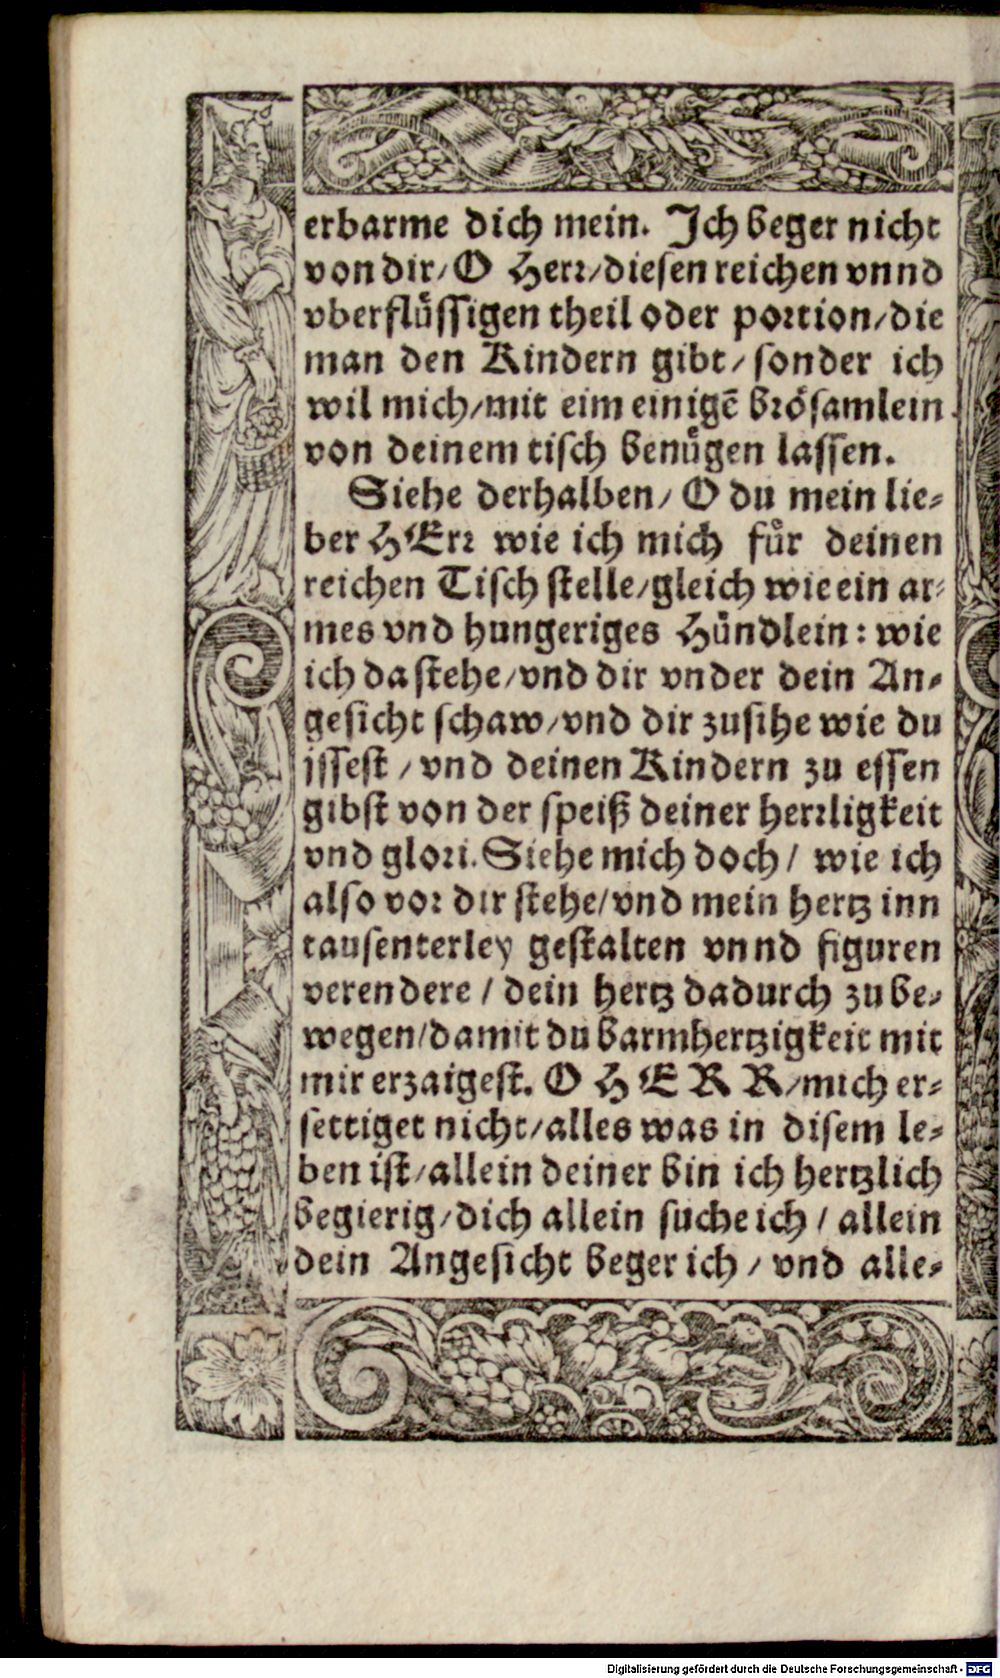 erbarme dich mein. Ich beger nicht
von dir/ O Herr/ diesen reichen vnnd
vberflüssigen theil oder portion/ die
man den Kindern gibt/ sonder ich
wil mich/ mit eim einigẽ brösamlein
von deinem tisch benügen lassen.
Siehe derhalben/ O du mein lie-
ber HErr wie ich mich für deinen
reichen Tisch stelle/ gleich wie ein ar-
mes vnd hungeriges Hündlein: wie
ich da stehe/ vnd dir vnder dein An-
gesicht schaw/ vnd dir zusihe wie du
issest / vnd deinen Kindern zu essen
gibst von der speiß deiner herrligkeit
vnd glori. Siehe mich doch / wie ich
also vor dir stehe/ vnd mein hertz inn
tausenterley gestalten vnnd figuren
verendere / dein hertz dadurch zu be-
wegen/ damit du barmhertzigkeit mit
mir erzaigest. O HERR/ mich er-
settiget nicht/ alles was in disem le-
ben ist/ allein deiner bin ich hertzlich
begierig/ dich allein suche ich / allein
dein Angesicht beger ich / vnd alle-
Digitalisierung gefördert durch die Deutsche Forschungsgemeinschaft - DFG